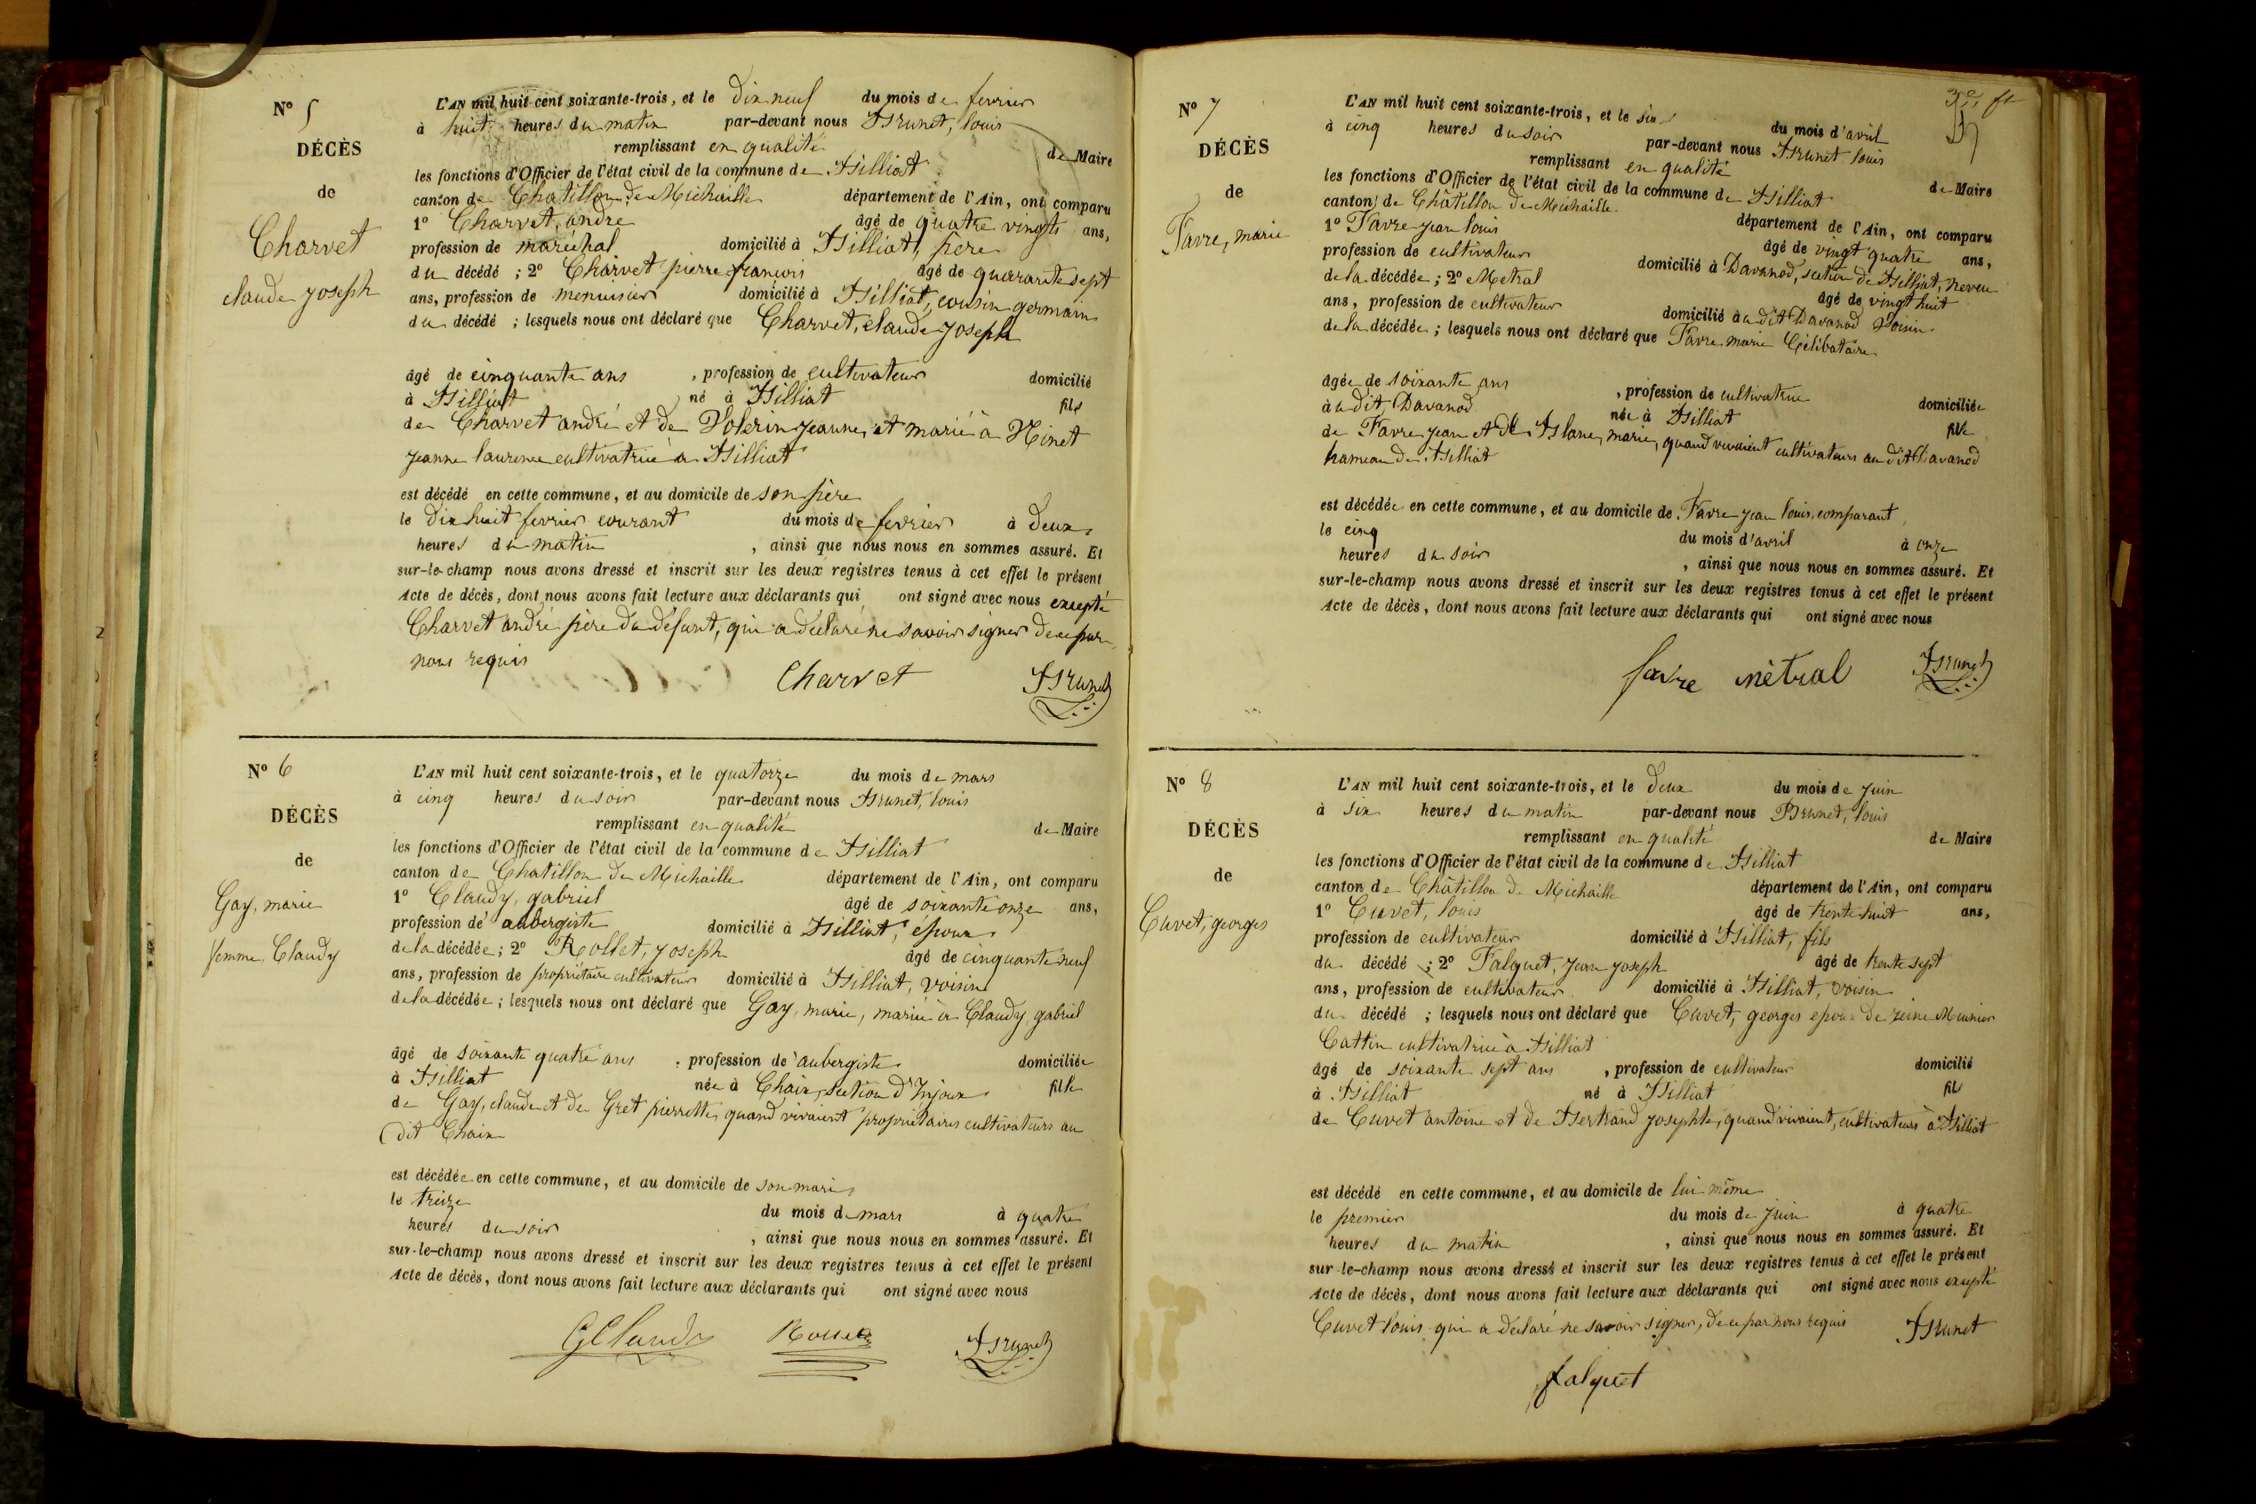 N° 5
DÉCÈS
de
Charvet
claude joseph
L'AN mil huit cent soixante-trois, et le dix neuf du mois de fevrier
à huit heures du matin par-devant nous Brunet, louis
remplissant en qualité de Maire
les fonctions d'Officier de l'état civil de la commune de Billiat
canton de Chatillon de Michaille département de l'Ain, ont comparu
1° Charvet, andre âgé de quatre vingts ans,
profession de maréchal domicilié à Billiat, pere
du décédé ; 2° Charvet pierre françois âgé de quarante sept
ans, profession de menuisier domicilié à Billiat, cousin germain
du décédé ; lesquels nous ont déclaré que Charvet, claude joseph
âgé de cinquante ans , profession de cultivateur domicilié
à Billiat né à Billiat fils
de Charvet andré et de Volerin jeanne, et marié à Ninet
jeanne laurence cultivatrice à Billiat
est décédé en cette commune, et au domicile de son père
le dix huit fevrier courant du mois de fevrier à deux
heures du matin , ainsi que nous nous en sommes assuré. Et
sur-le-champ nous avons dressé et inscrit sur les deux registres tenus à cet effet le présent
Acte de décès, dont nous avons fait lecture aux déclarants qui ont signé avec nous excepté
Charvet andré père du défunt, qui a déclaré ne savoir signer de ce par
nous requis
Charvet Brunet
N° 6
DÉCÈS
de
Gay, marie
femme Claudy
L'AN mil huit cent soixante-trois, et le quatorze du mois de mars
à cinq heures du soir par-devant nous Brunet, louis
remplissant en qualité de Maire
les fonctions d'Officier de l'état civil de la commune de Billiat
canton de Chatillon de Michaille département de l'Ain, ont comparu
1° Claudy, gabriel âgé de soixante onze ans,
profession de aubergiste domicilié à Billiat, époux
de la décédée ; 2° Rollet, joseph âgé de cinquante neuf
ans, profession de propriétaire cultivateur domicilié à Billiat, voisin
de la décédée ; lesquels nous ont déclaré que Gay, marie, mariée à Claudy, gabriel
âgé de soixante quatre ans , profession de aubergiste domiciliée
à Billiat née à Chaix, Section d'Injoux fille
de Gay, claude et de Gret pierrette, quand vivaient propriétaires cultivateurs au
dit Chaix
est décédée en cette commune, et au domicile de son mari
le treize du mois de mars à quatre
heures du soir , ainsi que nous nous en sommes assuré. Et
sur-le-champ nous avons dressé et inscrit sur les deux registres tenus à cet effet le présent
Acte de décès, dont nous avons fait lecture aux déclarants qui ont signé avec nous
G Claudy Brunet
N° 7
DÉCÈS
de
Favre, marie
L'AN mil huit cent soixante-trois, et le six du mois d'avril
à cinq heures du soir par-devant nous Brunet louis
remplissant en qualité de Maire
les fonctions d'Officier de l'état civil de la commune de Billiat
canton de Châtillon de Michaille département de l'Ain, ont comparu
1° Favre jean louis âgé de vingt quatre ans,
profession de cultivateur domicilié à Davanod, section de Billiat, neveu
de la décédée ; 2° Metral âgé de vingt huit
ans, profession de cultivateur domicilié à u dit Davanod Voisin
de la décédée ; lesquels nous ont déclaré que Favre marie Célibataire
âgée de soixante ans , profession de cultivatrice domiciliée
à u dit Davanod née à Billiat fille
de Favre jean et de Blanc, marie, quand vivaient cultivateurs au dit Davanod
hameau de Billiat
est décédée en cette commune, et au domicile de Favre jean louis, comparant
le cinq du mois d'avril à onze
heures du soir , ainsi que nous nous en sommes assuré. Et
sur-le-champ nous avons dressé et inscrit sur les deux registres tenus à cet effet le présent
Acte de décès, dont nous avons fait lecture aux déclarants qui ont signé avec nous
favre métral Brunet
N° 8
DÉCÈS
de
Cuvet, georges
L'AN mil huit cent soixante-trois, et le deux du mois de juin
à six heures du matin par-devant nous Brunet, louis
remplissant en qualité de Maire
les fonctions d'Officier de l'état civil de la commune de Billiat
canton de Châtillon de Michaille département de l'Ain, ont comparu
1° Cuvet, louis âgé de trente huit ans,
profession de cultivateur domicilié à Billiat, fils
du décédé ; 2° Falquet, jean joseph âgé de trente sept
ans, profession de cultivateur domicilié à Billiat, voisin
du décédé ; lesquels nous ont déclaré que Cuvet, georges epoux de reine Munier
Cattin cultivatrice à Billiat
âgé de soixante sept ans , profession de cultivateur domicilié
à Billiat né à Billiat fils
de Cuvet antoine et de Bertrand josephte, quand vivaient, cultivateurs à Billiat
est décédé en cette commune, et au domicile de lui même
le premier du mois de juin à quatre
heures du matin , ainsi que nous nous en sommes assuré. Et
sur-le-champ nous avons dressé et inscrit sur les deux registres tenus à cet effet le présent
Acte de décès, dont nous avons fait lecture aux déclarants qui ont signé avec nous excepté
Cuvet louis qui a déclaré ne savoir signer, de ce par nous requis Brunet
falquet